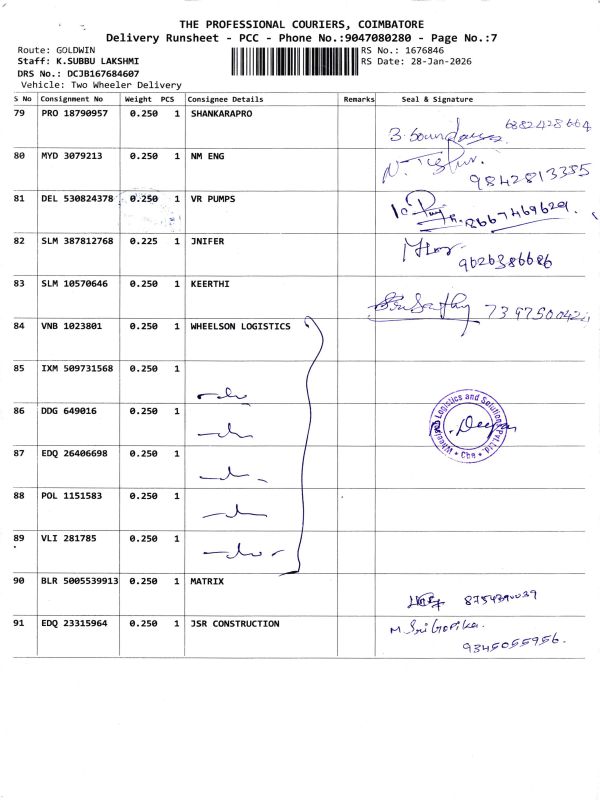 THE PROFESSIONAL COURIERS, COIMBATORE
Delivery Runsheet - PCC - Phone No.:9047080280 - Page No.:7
Route: GOLDWIN RS No.: 1676846
Staff: K.SUBBU LAKSHMI RS Date: 28-Jan-2026
DRS No.: DCJB167684607
Vehicle: Two Wheeler Delivery
S No Consignment No Weight PCS Consignee Details Remarks Seal & Signature
79 PRO 18790957 0.250 1 SHANKARAPRO
80 MYD 3079213 0.250 1 NM ENG
9842813355
81 DEL 530824378 0.250 1 VR PUMPS
8667469629.
82 SLM 387812768 0.225 1 JNIFER
9626386686
83 SLM 10570646 0.250 1 KEERTHI
84 VNB 1023801 0.250 1 WHEELSON LOGISTICS
85 IXM 509731568 0.250 1
86 DDG 649016 0.250 1
Logistics and Solution Pvt.Ltd. * Cbe *
87 EDQ 26406698 0.250 1
88 POL 1151583 0.250 1
89 VLI 281785 0.250 1
90 BLR 5005539913 0.250 1 MATRIX
91 EDQ 23315964 0.250 1 JSR CONSTRUCTION
M. SriGopika.
9345055956.